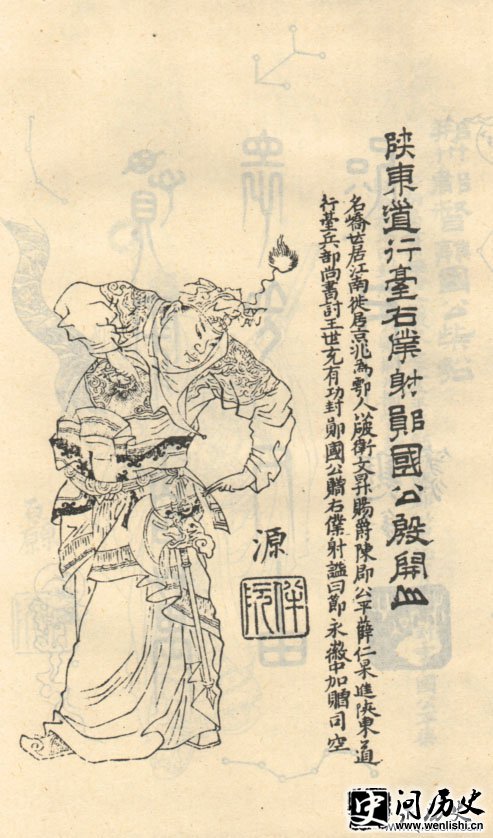 陝東道行臺右僕射鄖國公殷開山
名嶠世居江南徙居京兆為鄠人以破衛文昇賜爵陳郡公平薛仁杲進陝東道
行臺兵部尚書討王世充有功封鄖國公贈右僕射諡曰節永徽中加贈司空
源
伴阮
问历史
www.wenlishi.cn